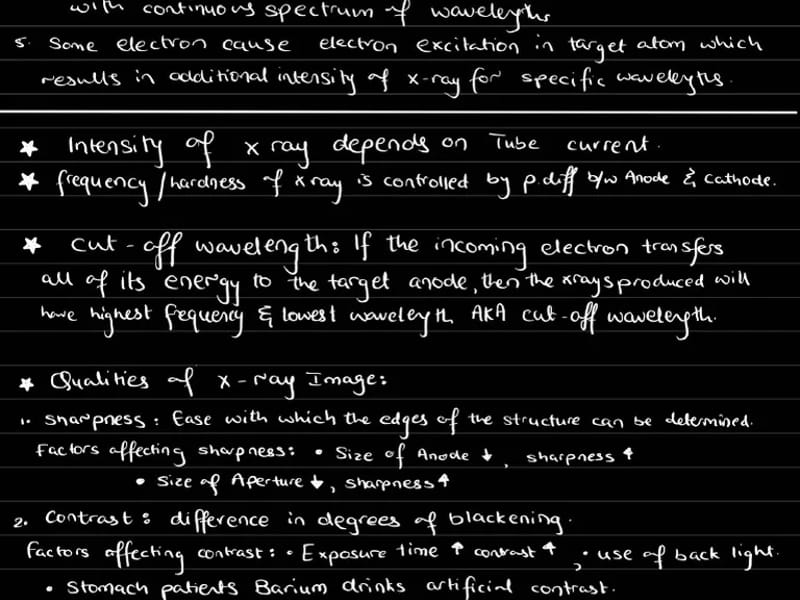 with continuous spectrum of wavelengths
5. Some electron cause electron excitation in target atom which
results in additional intensity of x-ray for specific wavelengths.
★ Intensity of x ray depends on Tube current.
★ frequency/hardness of x ray is controlled by p.diff b/w Anode & Cathode.
★ Cut-off wavelength: If the incoming electron transfers
all of its energy to the target anode, then the xrays produced will
have highest frequency & lowest wavelength AKA cut-off wavelength.
★ Qualities of x-ray Image:
1. Sharpness: Ease with which the edges of the structure can be determined.
Factors affecting sharpness: • Size of Anode ↓, sharpness ↑
• Size of Aperture ↓, sharpness ↑
2. Contrast: difference in degrees of blackening.
Factors affecting contrast: • Exposure time ↑ contrast ↑, • use of back light.
• Stomach patients Barium drinks artificial contrast.